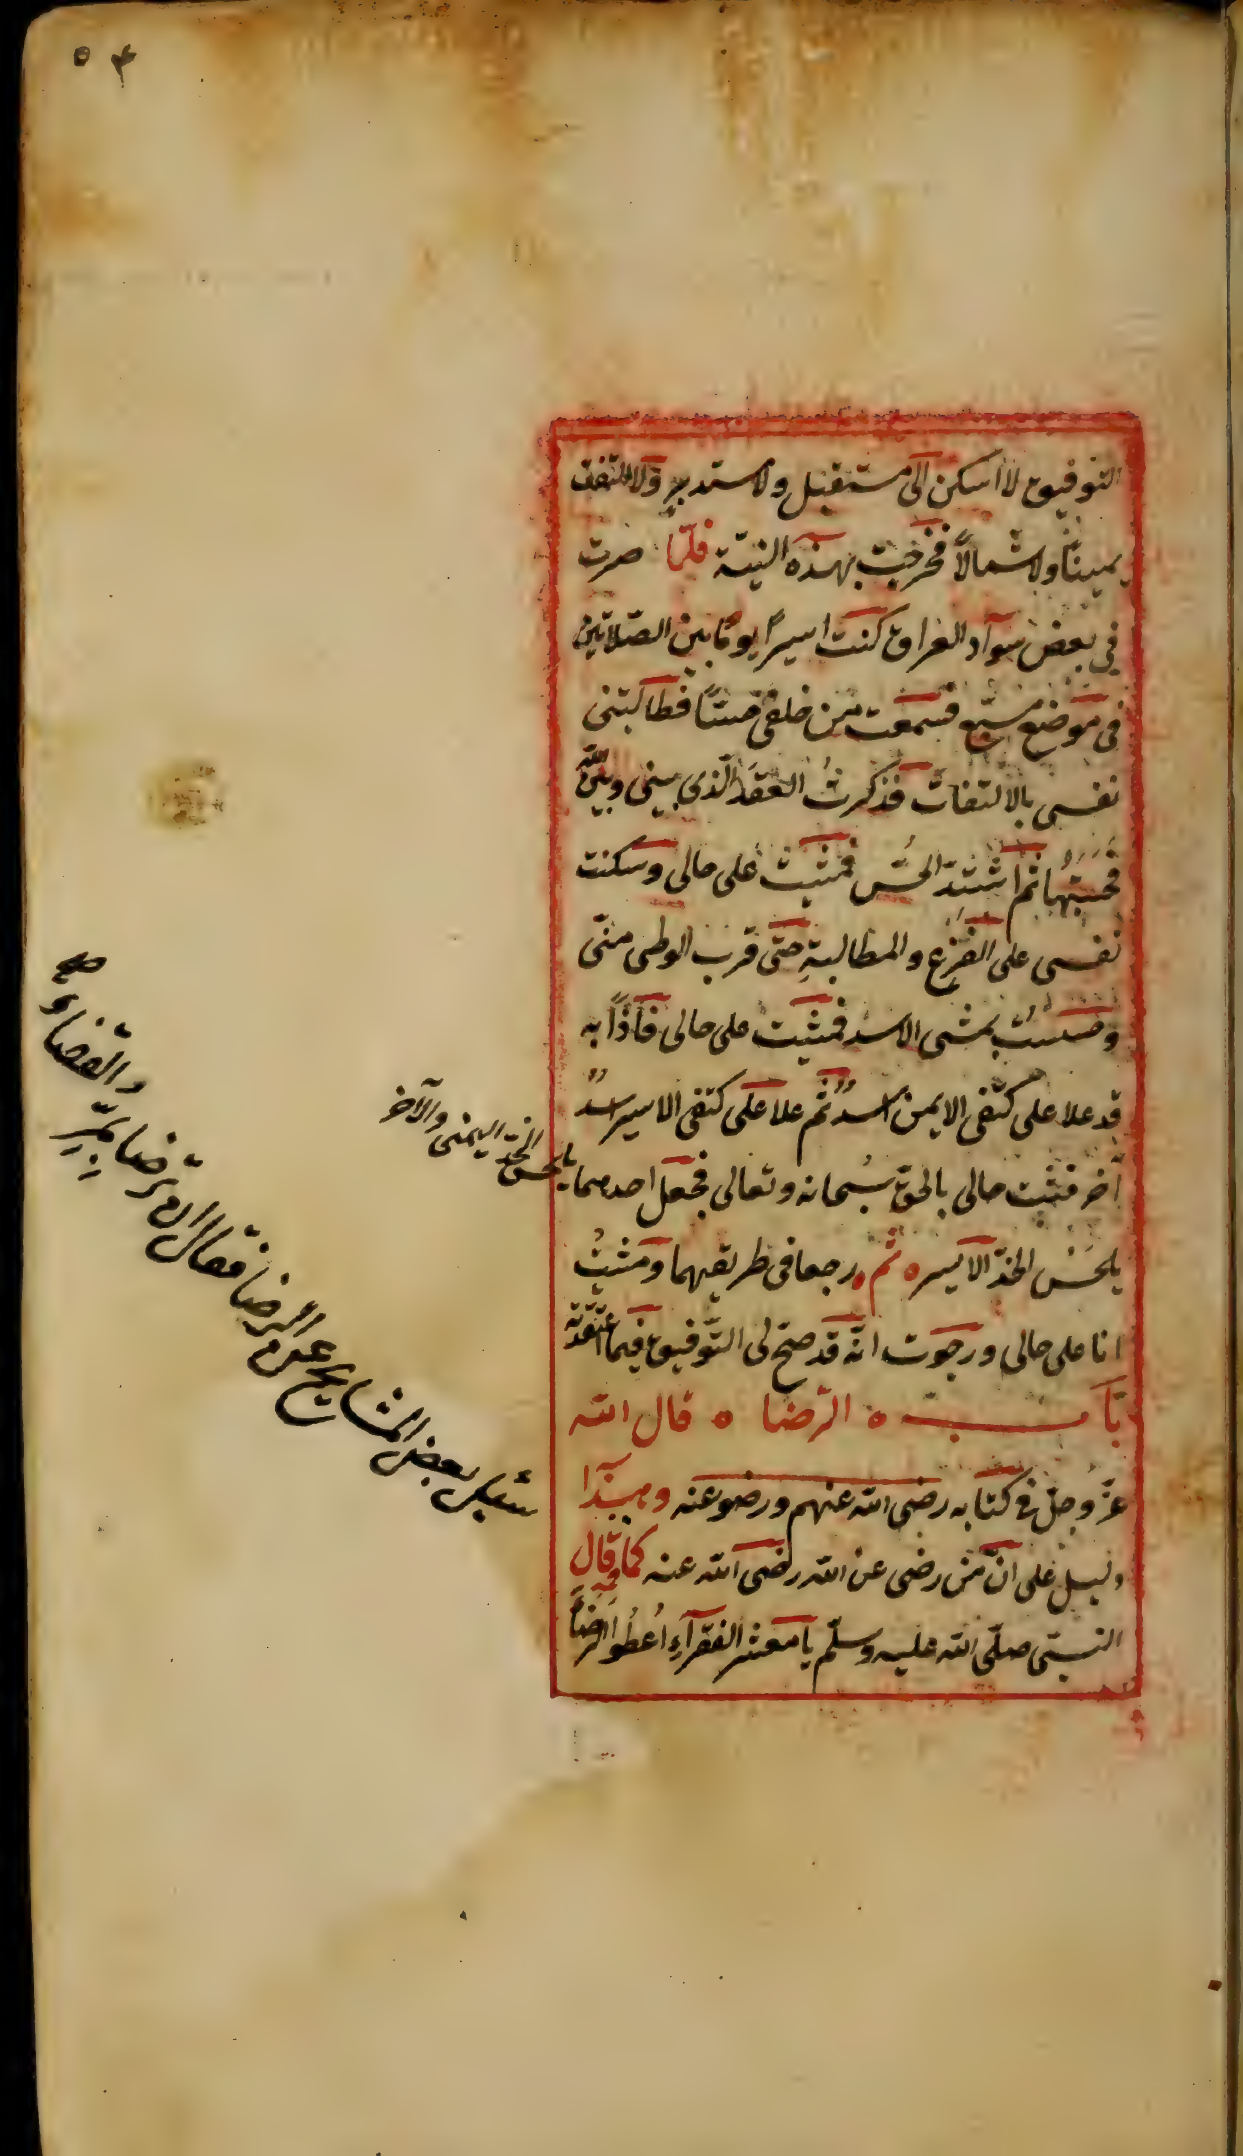 التوفيق لا اسكن الى مستقبل ولا مستدبر ولا التفت
يميناً ولا شمالاً فخرجت بهذه النيّة فلمّا صرت
في بعض سوآد العراق كنت اسير يوماً بين الصّلاتين
في موضع مسبع فسمعت من خلفي حسّاً فطالبتنى
نفسى بالالتفات فذكرتُ العقد الّذى بينى وبين اللّه
فحسبتُها ثم اشتدّ الحسّ فمشيت على حالى وسكنت
نفسى على الفزع والمطالبةِ حتّى قرب الوطى منّى
وحسستُ بمشى الاسد فمشيت على حالى فاذاً به
قد علا على كتفى الايمن اسدٌ ثمّ علا على كتفى الايسر اسدٌ
آخر فثبت حالى بالحقّ سُبحانه وتعالى فجعل احدهما
يلحس الخدّ اليمنى والآخر
يلحسُ الخدّ الايسر ثم رجعا فى طريقهما ومشيتُ
انا على حالى ورجوت انّه قد صحّ لى التّوفيق فيما اعتقدته
بآب الرّضا قال اللّه
عزّ وجلّ فى كتابه رضى اللّه عنهم ورضو عنه وهٰذا
دليل على انّ من رضى عن اللّه رضى اللّه عنه كما وقال
النّبىّ صلّى اللّه عليه وسلّم يا معشر الفقرآءِ اُعطُوا الرّضآ
سئل بعض المشايخ عن الرضا فقال ان ترضا بمُرِّ
القضاء صح